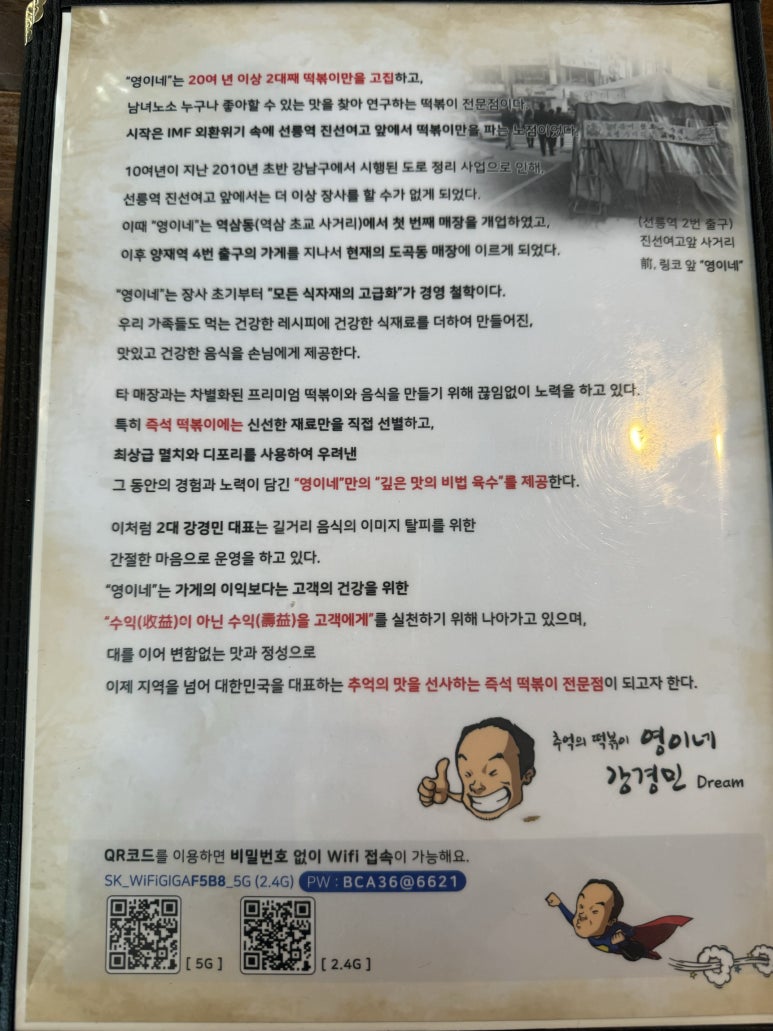 "영이네"는 20여 년 이상 2대째 떡볶이만을 고집하고,
남녀노소 누구나 좋아할 수 있는 맛을 찾아 연구하는 떡볶이 전문점이다.
시작은 IMF 외환위기 속에 선릉역 진선여고 앞에서 떡볶이만을 파는 노점이었다.
10여년이 지난 2010년 초반 강남구에서 시행된 도로 정리 사업으로 인해,
선릉역 진선여고 앞에서는 더 이상 장사를 할 수가 없게 되었다.
이때 "영이네"는 역삼동(역삼 초교 사거리)에서 첫 번째 매장을 개업하였고,
이후 양재역 4번 출구의 가게를 지나서 현재의 도곡동 매장에 이르게 되었다.
(선릉역 2번 출구)
진선여고앞 사거리
前, 링코 앞 "영이네"
"영이네"는 장사 초기부터 "모든 식자재의 고급화"가 경영 철학이다.
우리 가족들도 먹는 건강한 레시피에 건강한 식재료를 더하여 만들어진,
맛있고 건강한 음식을 손님에게 제공한다.
타 매장과는 차별화된 프리미엄 떡볶이와 음식을 만들기 위해 끊임없이 노력을 하고 있다.
특히 즉석 떡볶이에는 신선한 재료만을 직접 선별하고,
최상급 멸치와 디포리를 사용하여 우려낸
그 동안의 경험과 노력이 담긴 "영이네"만의 "깊은 맛의 비법 육수"를 제공한다.
이처럼 2대 강경민 대표는 길거리 음식의 이미지 탈피를 위한
간절한 마음으로 운영을 하고 있다.
"영이네"는 가게의 이익보다는 고객의 건강을 위한
"수익(收益)이 아닌 수익(壽益)을 고객에게"를 실천하기 위해 나아가고 있으며,
대를 이어 변함없는 맛과 정성으로
이제 지역을 넘어 대한민국을 대표하는 추억의 맛을 선사하는 즉석 떡볶이 전문점이 되고자 한다.
추억의 떡볶이 영이네
강경민 Dream
QR코드를 이용하면 비밀번호 없이 Wifi 접속이 가능해요.
SK_WiFiGIGAF5B8_5G (2.4G) PW : BCA36@6621
[ 5G ] [ 2.4G ]